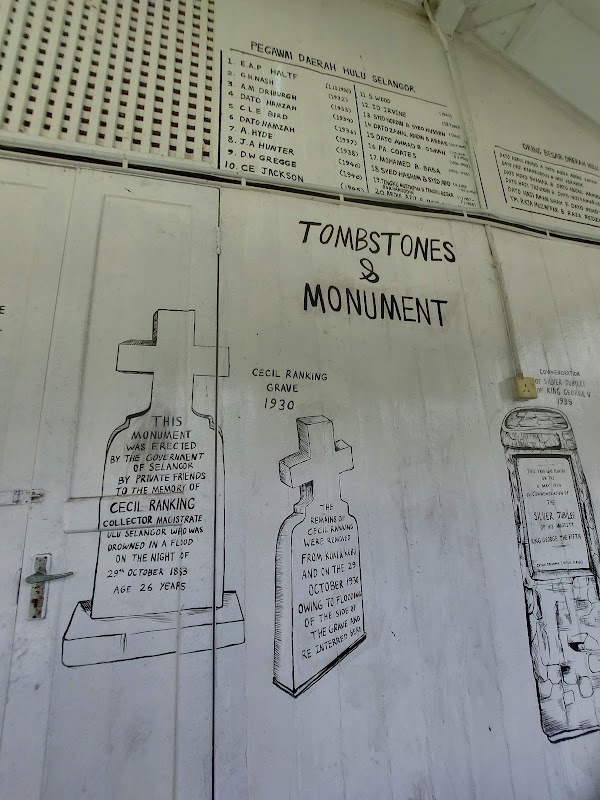 PEGAWAI DAERAH HULU SELANGOR
1. E.A.P HALTF
2. G.H.NASH
3. A.M DRIBURGH (1932)
4. DATO HAMZAH (1933)
5. C.L.E BIRD (1934)
6. DATO HAMZAH (1936)
7. A. HYDE (1937)
8. J.A HUNTER (1938)
9. D.W GREGGE (1940)
10. CE JACKSON (1940)
11. S.WOOD
12. I.D IRVINE
16. P.A. COATES
17. MOHAMED B. BABA
ORANG BESAR DAERAH HULU
TOMBSTONES
&
MONUMENT
THIS
MONUMENT
WAS ERECTED
BY THE GOVERNMENT
OF SELANGOR
BY PRIVATE FRIENDS
TO THE MEMORY OF
CECIL RANKING
COLLECTOR MAGISTRATE
ULU SELANGOR WHO WAS
DROWNED IN A FLOOD
ON THE NIGHT OF
29th OCTOBER 1883
AGE 26 YEARS
CECIL RANKING
GRAVE
1930
THE
REMAINS OF
CECIL RANKING
WERE REMOVED
FROM KUALA KUBU
AND ON THE 29
OCTOBER 1930
OWING TO FLOODING
OF THE SIDE OF
THE GRAVE AND
RE INTERRED HERE
COMMEMORATION
OF SILVER JUBILEE
OF KING GEORGE V
1935
THIS TREE WAS PLANTED
ON THE
6 MAY 1935
IN COMMEMORATION
OF THE
SILVER JUBILEE
OF HIS MAJESTY
KING GEORGE THE FIFTH